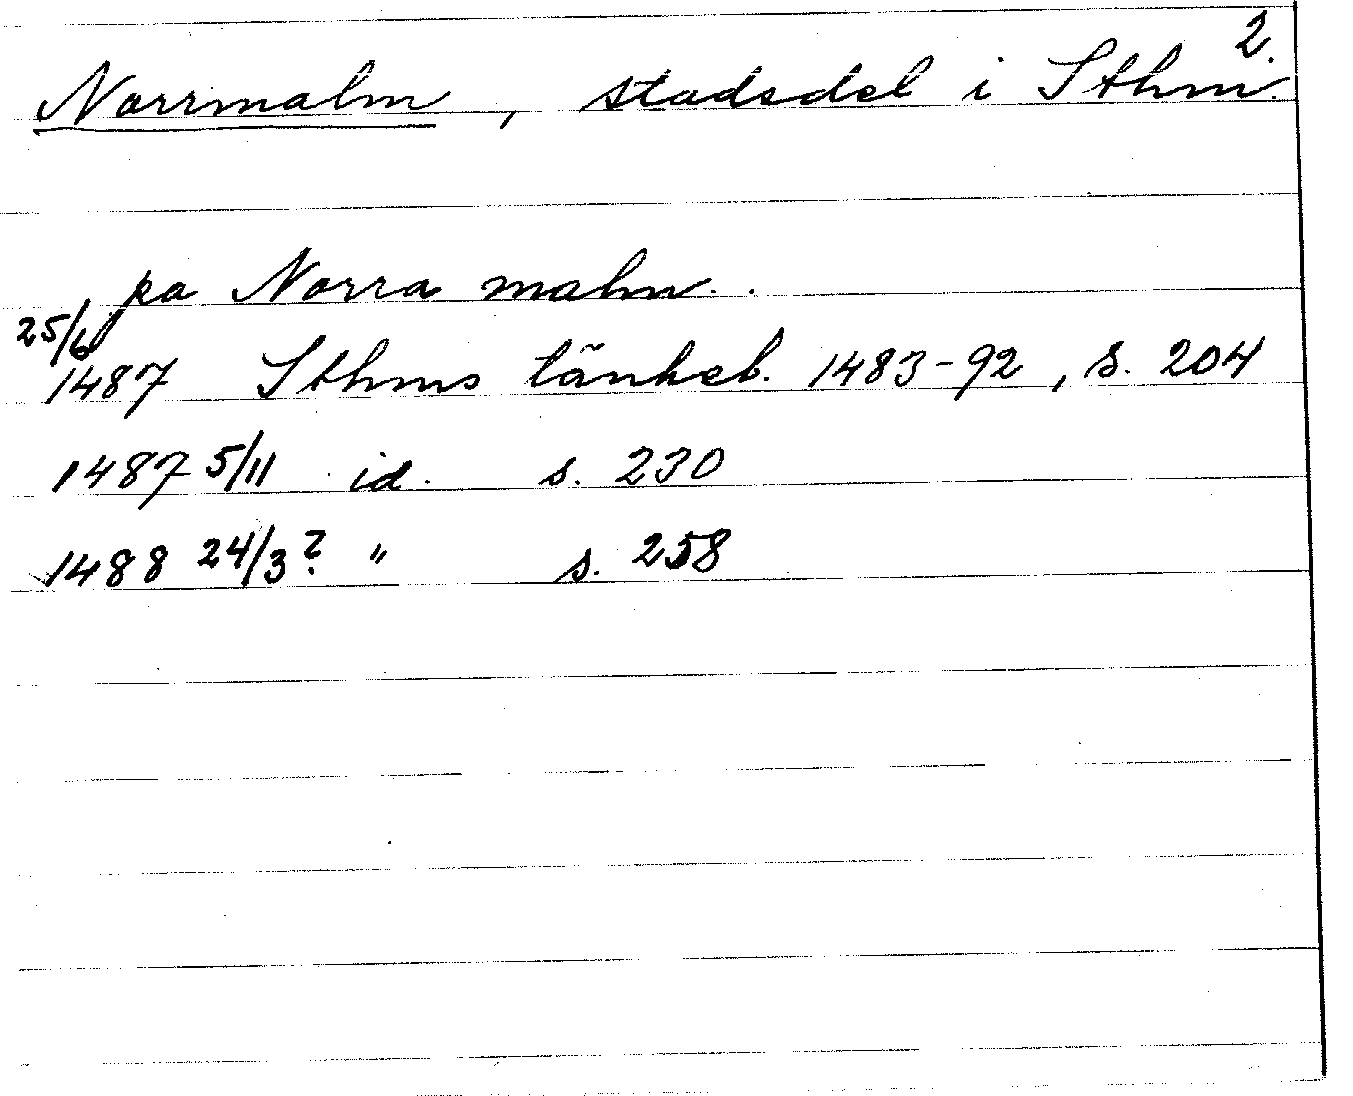 2.
Norrmalm, stadsdel i Sthm.
pa Norra malm..
25/6
1487 Sthms tänkeb. 1483-92, s. 204
1487 5/11 id. s. 230
1488 24/3? " s. 258